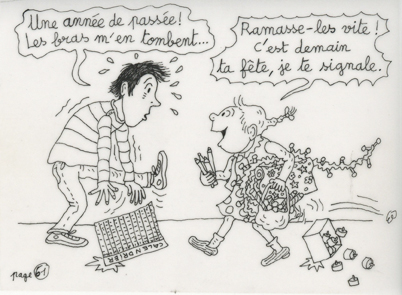 Une année de passée!
Les bras m'en tombent...
Ramasse-les vite!
c'est demain
ta fête, je te signale.
CALENDRIER
page 61